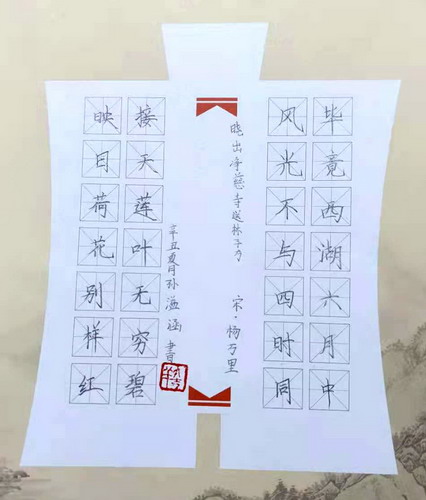 毕竟西湖六月中
风光不与四时同
晓出净慈寺送林子方
宋·杨万里
接天莲叶无穷碧
映日荷花别样红
辛丑夏月孙溢涵书